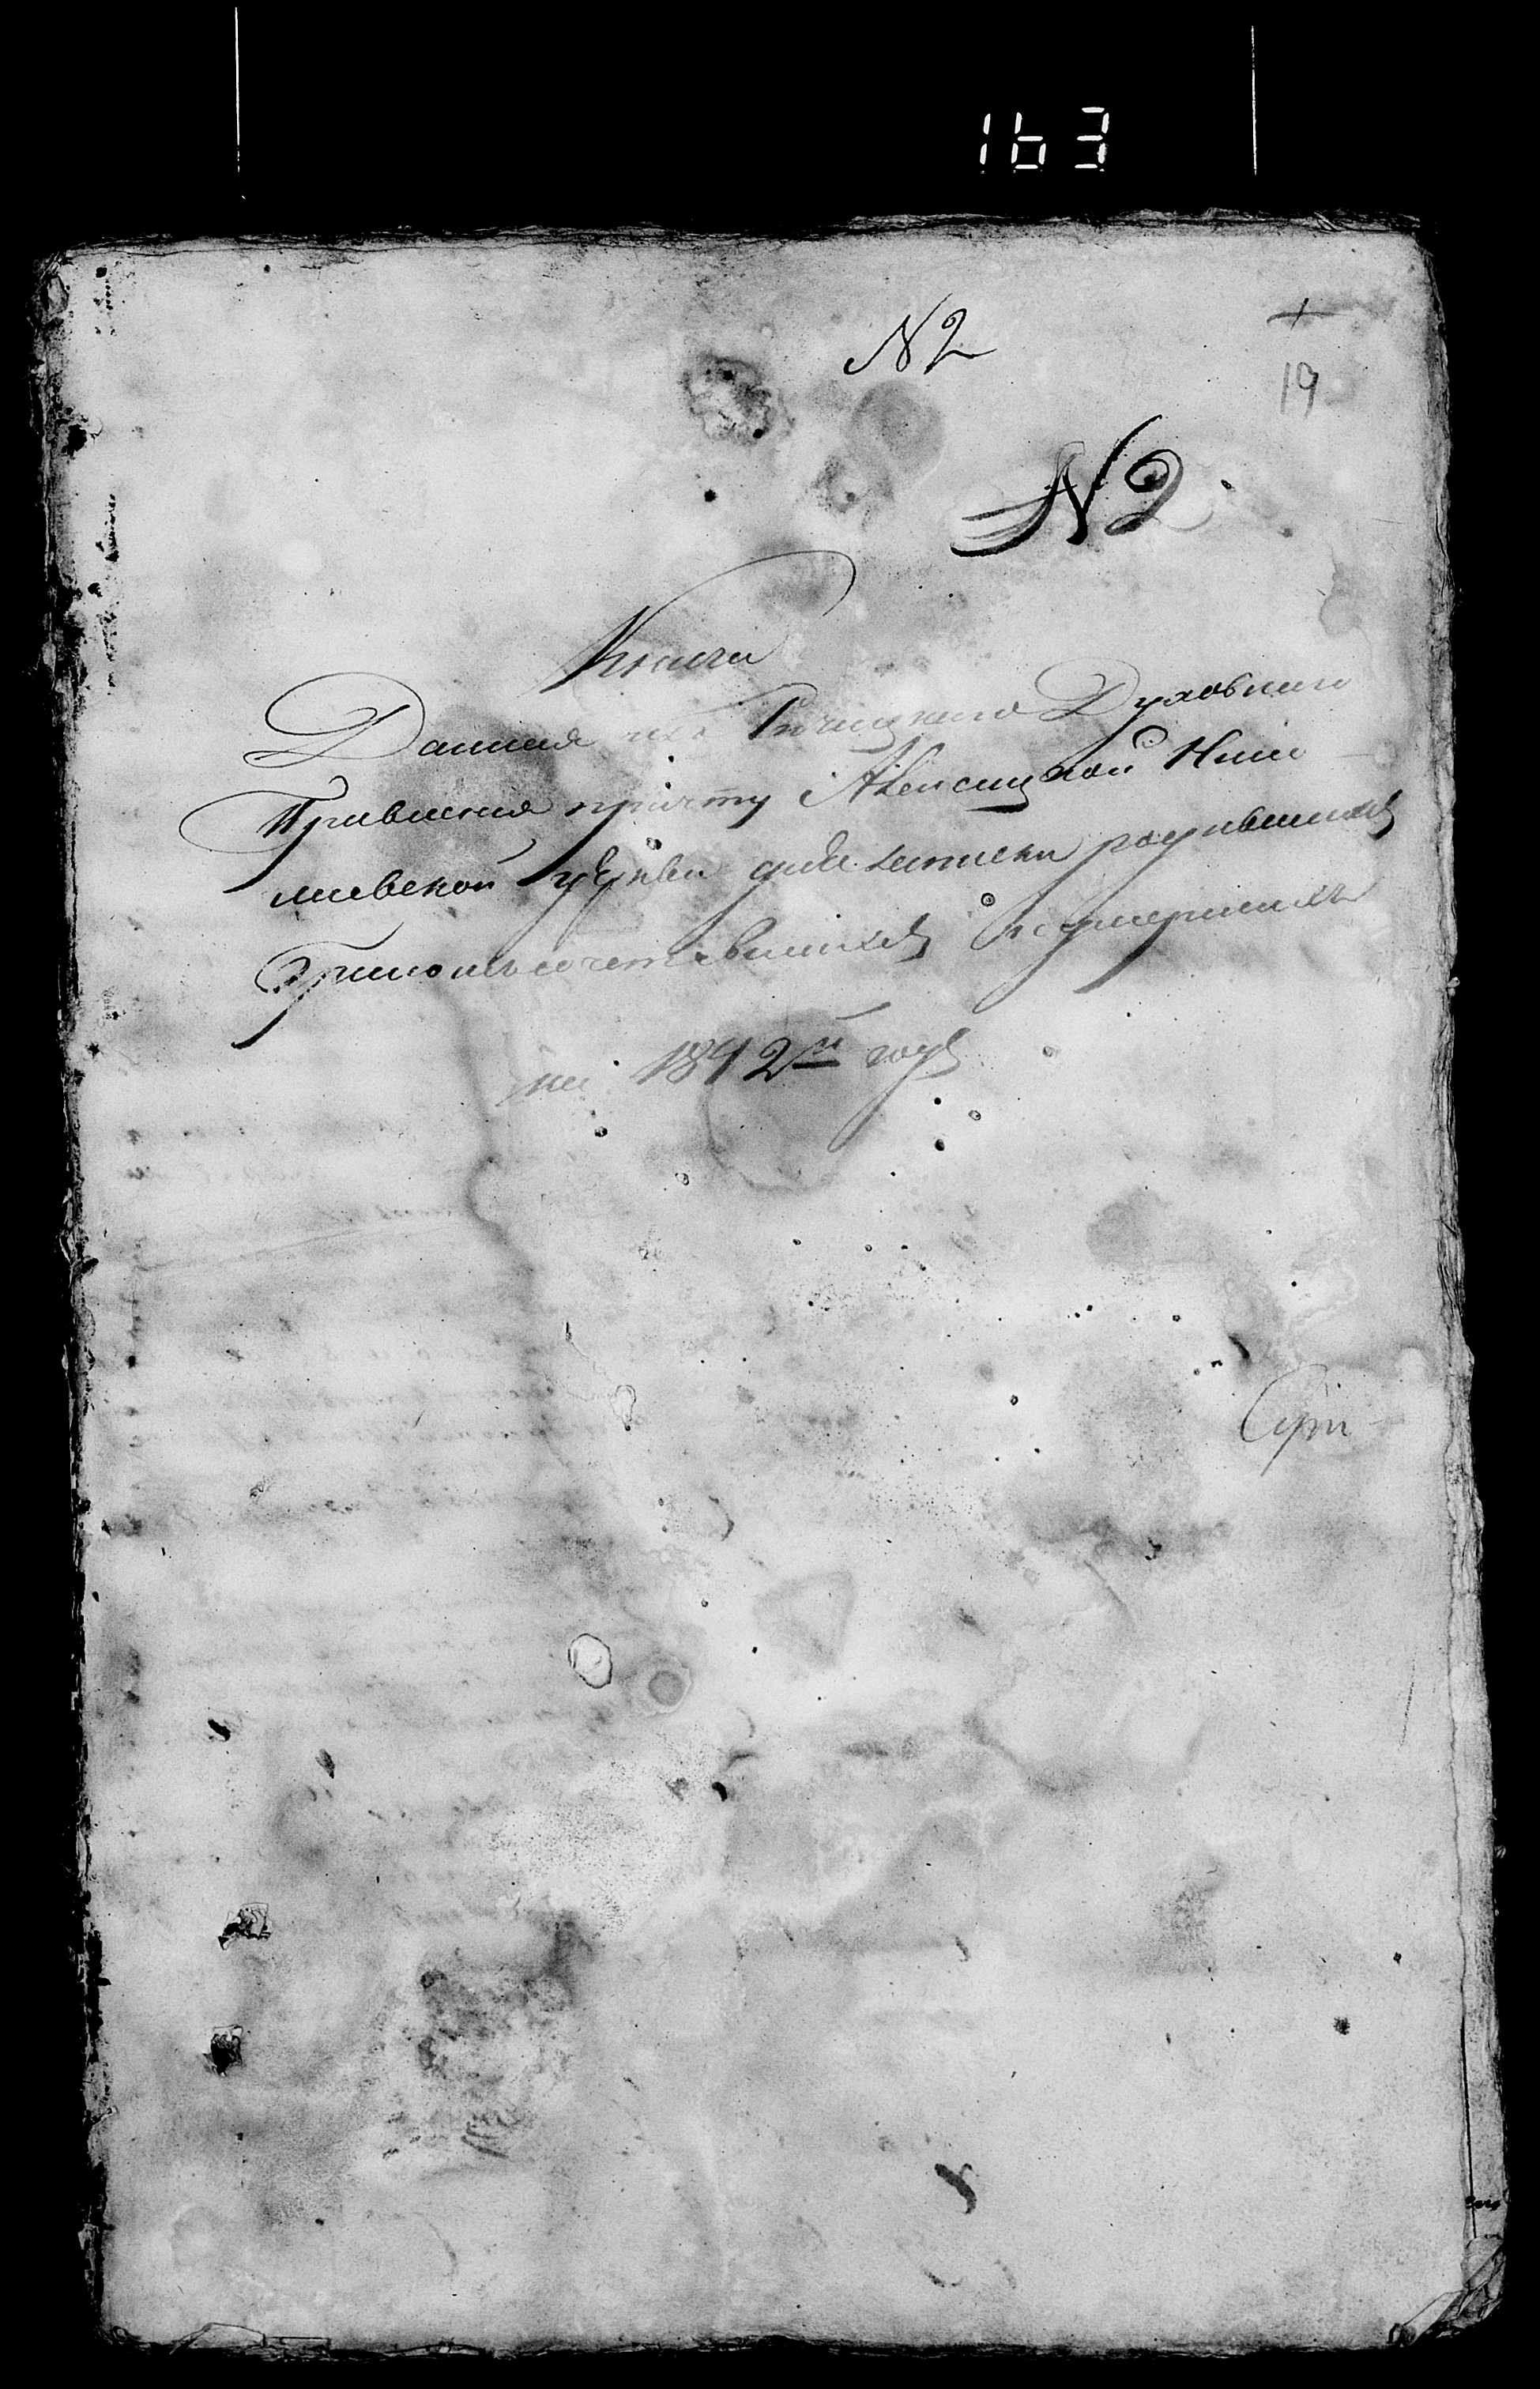 163
N 2
19
N 2
Книга
Данная изъ Речицкаго Духовнаго
Правленія причту Алексицкой Нико
лаевской церкви для записки родившихся
Бракомъ сочетавшихся и умершихъ
на 1842й годъ